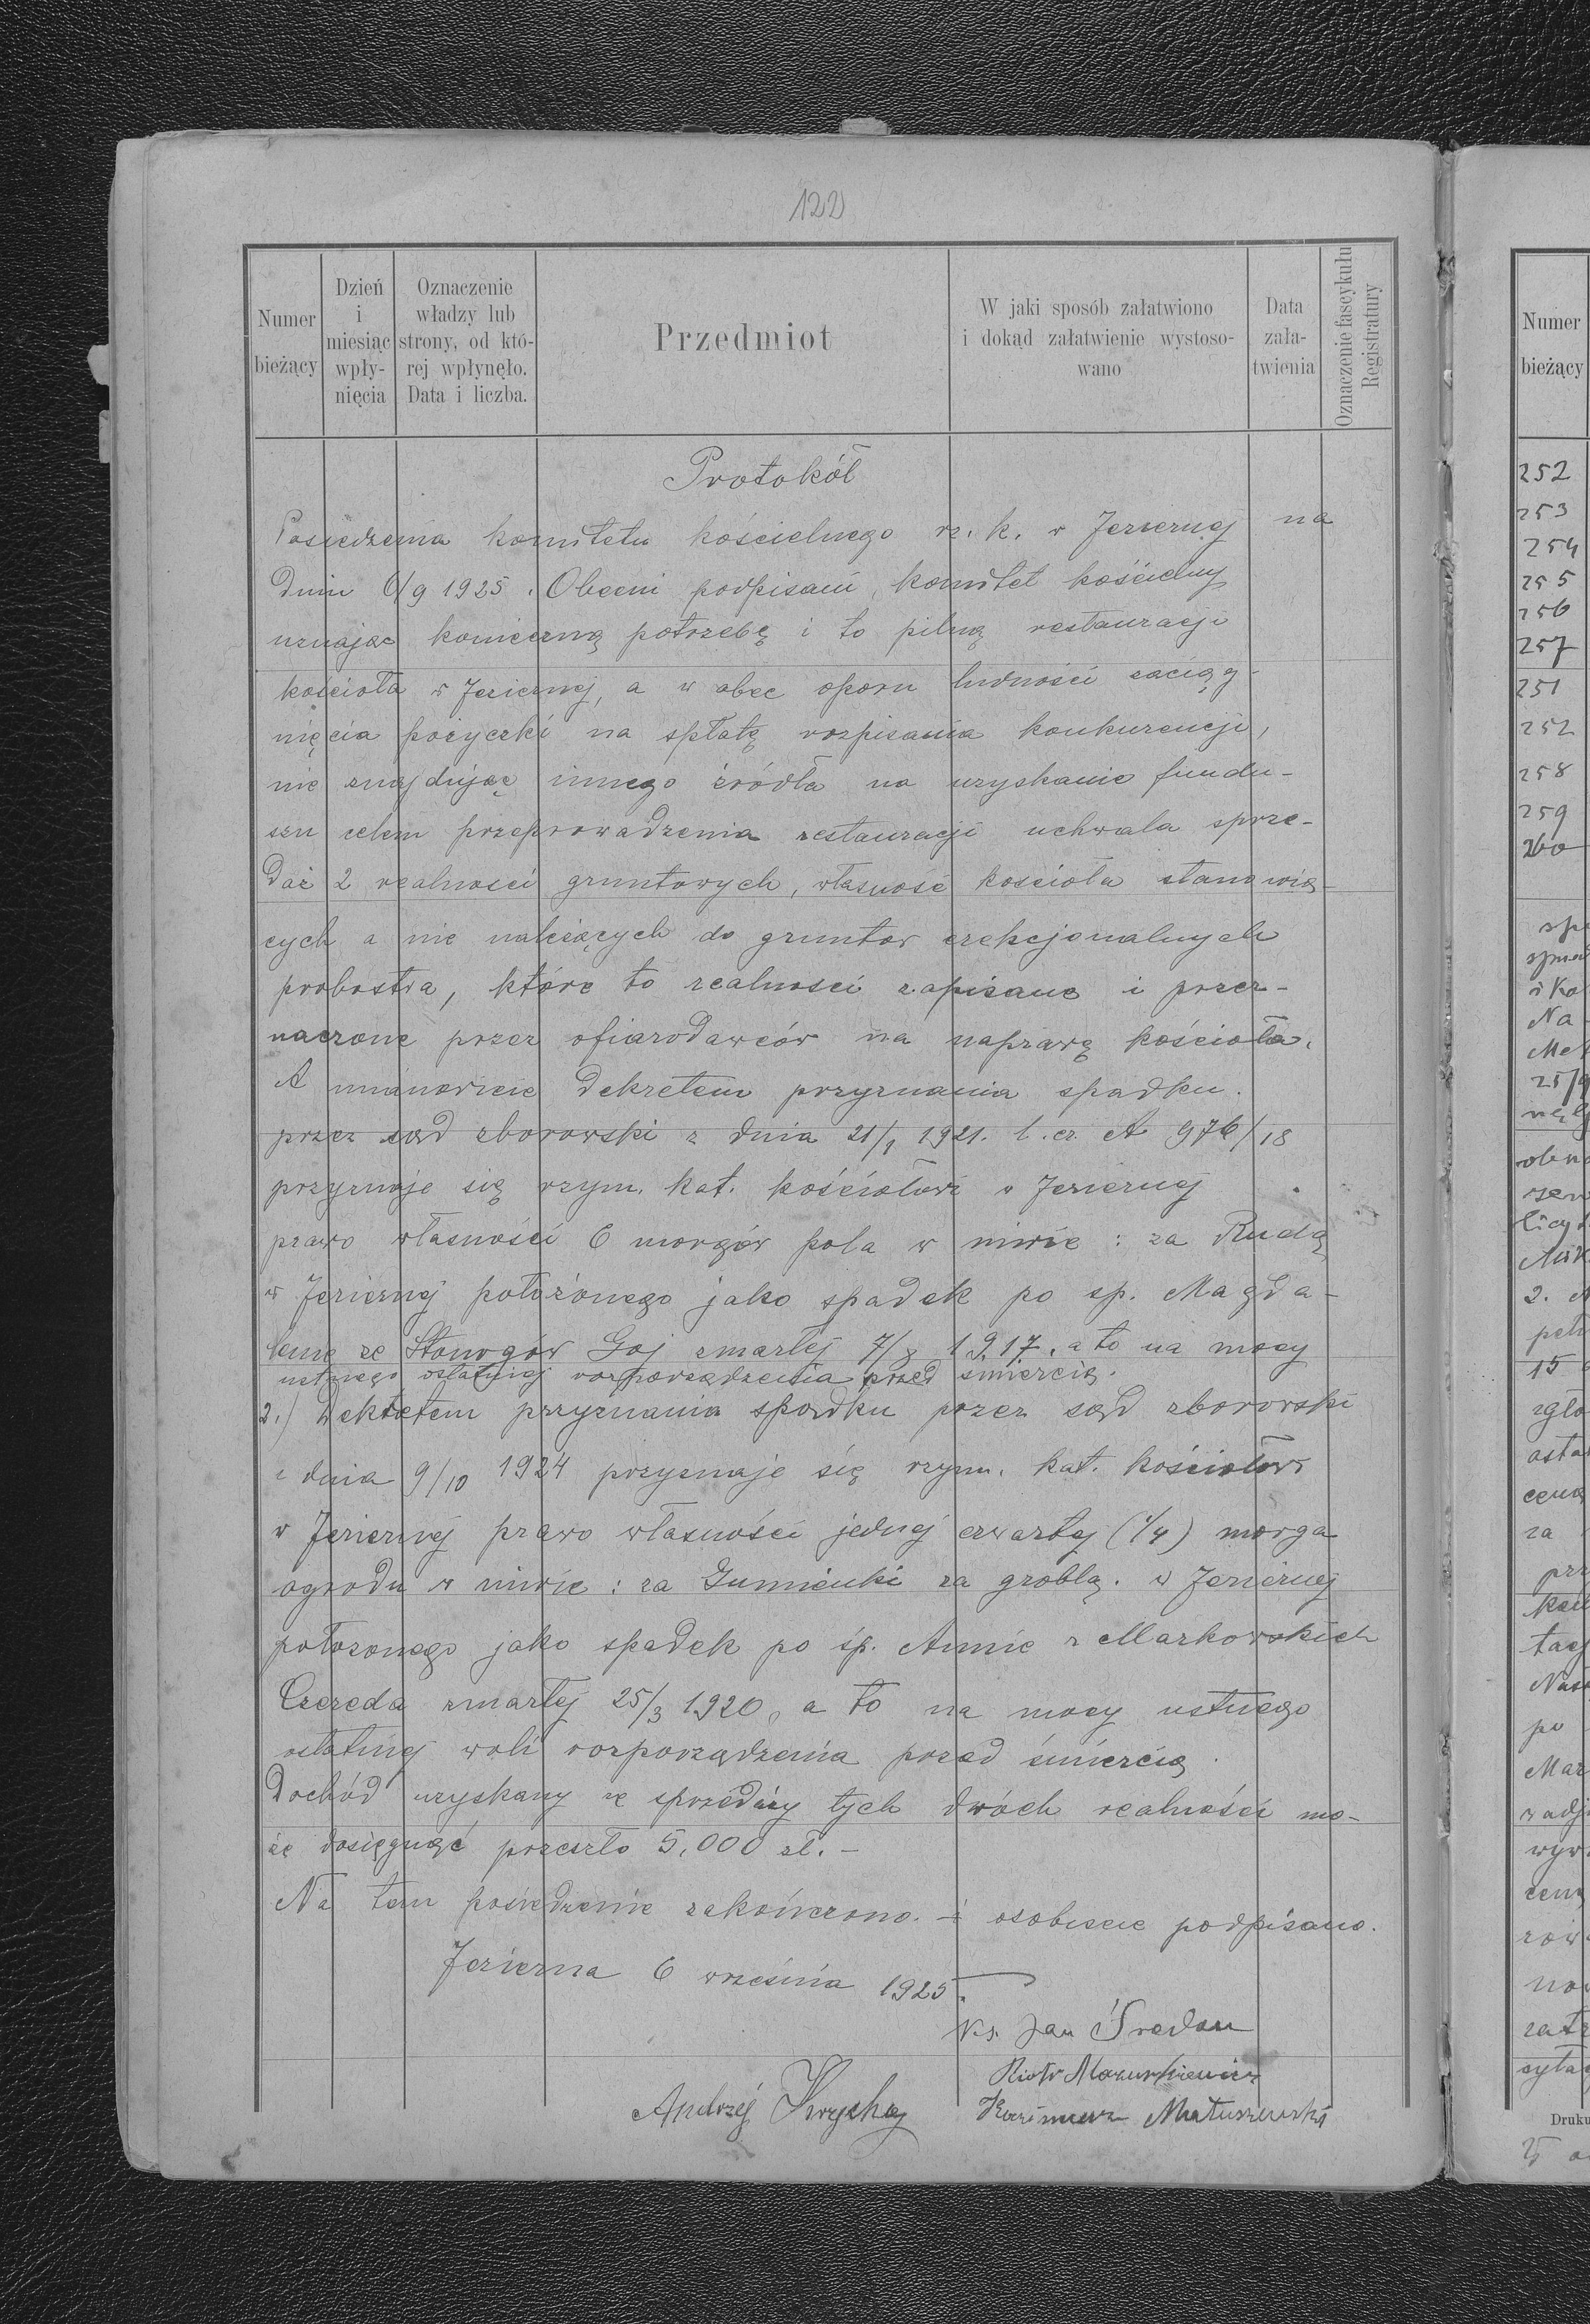 122
Numer bieżący
Dzień i miesiąc wpłynięcia
Oznaczenie władzy lub strony, od której wpłynęło. Data i liczba.
Przedmiot
W jaki sposób załatwiono i dokąd załatwienie wystosowano
Data załatwienia
Oznaczenie fascykułu Registratury
Protokół
Posiedzenia komitetu kościelnego rz. k. w Jeziernej na
dniu 6/9 1925. Obecni podpisani, komitet kościelny
uznając konieczną potrzebę i to pilną restauracji
kościoła w Jeziernej, a w obec oporu ludności zaciąg-
nięcia pożyczki na spłatę rozpisania konkurencji,
nie znajdując innego źródła na uzyskanie fundu-
szu celem przeprowadzenia restauracji uchwala sprze-
daż 2 realności gruntowych, własność kościoła stanowią-
cych a nie należących do gruntów erekcjonalnych
probostwa, które to realności zapisane i przez-
naczone przez ofiarodawców na naprawę kościoła.
A mianowicie dekretem przyznania spadku
przez sąd zborowski z dnia 21/1 1921. l. cz. A 976/18
przyznaje się rzym. kat. kościołowi w Jeziernej
prawo własności 6 morgów pola w niwie : za Rudą
w Jeziernej położonego jako spadek po śp. Magda-
lenie ze Stonogów Goj zmarłej 7/8 1917, a to na mocy
ustnego ostatniej rozporządzenia przed śmiercią.
2.) Dekretem przyznania spadku przez sąd zborowski
z dnia 9/10 1924 przyznaje się rzym. kat. kościołowi
w Jeziernej prawo własności jednej czwartej (1/4) morga
ogrodu w niwie : za Gumienki za groblą. w Jeziernej
położonego jako spadek po śp. Annie z Markowskich
Czereda zmarłej 25/3 1920, a to na mocy ustnego
ostatniej woli rozporządzenia przed śmiercią.
Dochód uzyskany ze sprzedaży tych dwóch realności mo-
że dosięgnąć przeszło 5.000 zł. –
Na tem posiedzenie zakończono. i osobiscie podpisano.
Jezierna 6 września 1925.
Ks. Jan
Piotr Mazurkiewicz
Andrzej Kazimierz Matuszewski
Numer bieżący
252
253
254
255
256
257
251
252
258
259
260